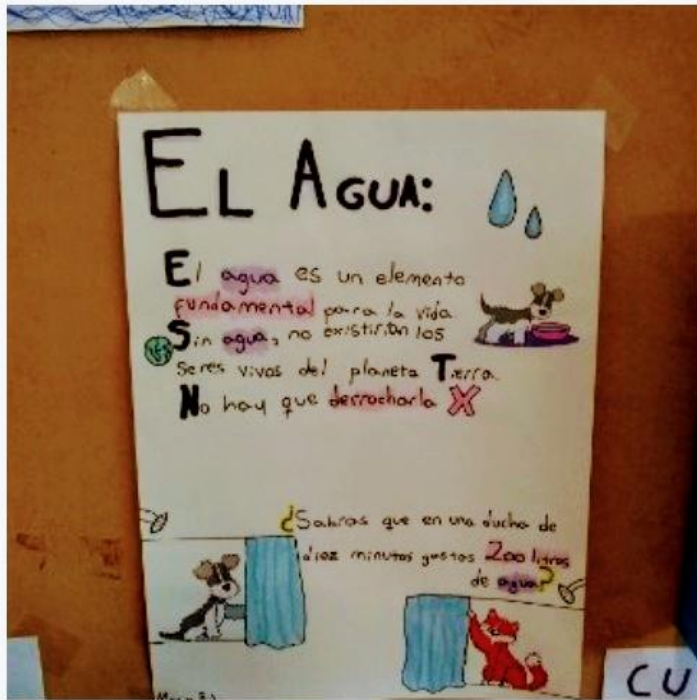 EL AGUA:
El agua es un elemento
fundamental para la vida
Sin agua, no existirían los
seres vivos del planeta Tierra
No hay que derrocharla X
¿Sabías que en una ducha de
diez minutos gastas 200 litros
de agua?
CU